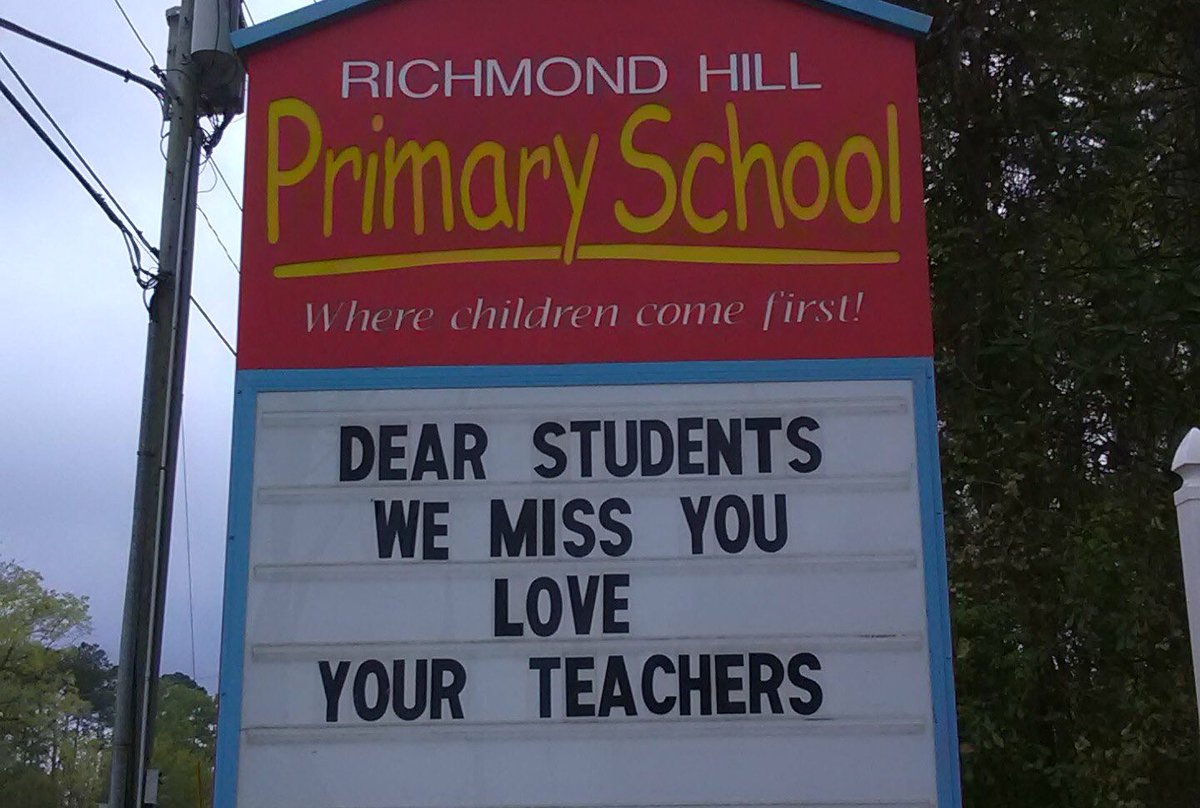 RICHMOND HILL
Primary School
Where children come first!
DEAR STUDENTS
WE MISS YOU
LOVE
YOUR TEACHERS